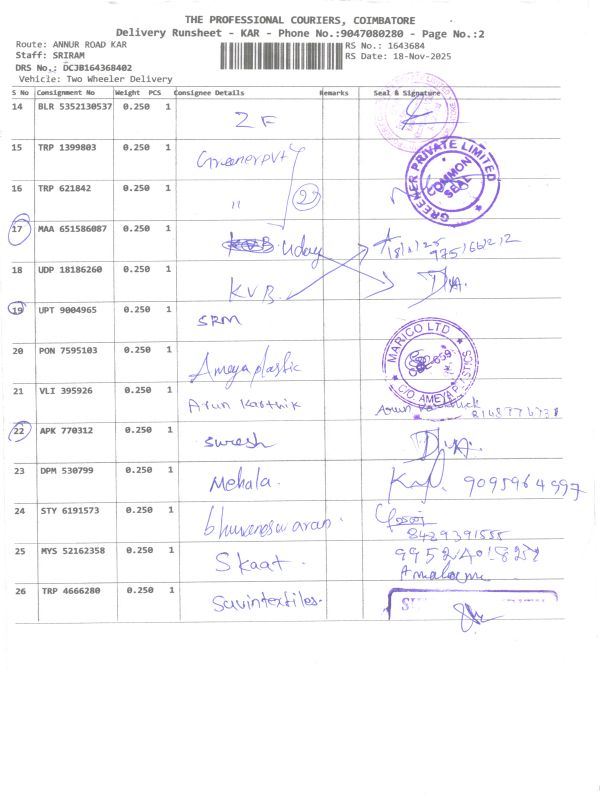 THE PROFESSIONAL COURIERS, COIMBATORE
Delivery Runsheet - KAR - Phone No.:9047080280 - Page No.:2
Route: ANNUR ROAD KAR
RS No.: 1643684
Staff: SRIRAM
RS Date: 18-Nov-2025
DRS No.: DCJB164368402
Vehicle: Two Wheeler Delivery
S No Consignment No Weight PCS Consignee Details Remarks Seal & Signature
14 BLR 5352130537 0.250 1 ZF
15 TRP 1399803 0.250 1 Greener pvt
GREENER PRIVATE LIMITED
COMMON SEAL
16 TRP 621842 0.250 1 "
17 MAA 651586087 0.250 1 KVB Uday
18 UDP 18186260 0.250 1 KVB
19 UPT 9004965 0.250 1 SRM
20 PON 7595103 0.250 1 Ameya plastic
MARICO LTD
C/O AMEYA PLASTICS
21 VLI 395926 0.250 1 Arun Karthik
22 APK 770312 0.250 1 Suresh
23 DPM 530799 0.250 1 Mehala. 9095964997
24 STY 6191573 0.250 1 bhuvaneswaran.
8429391555
25 MYS 52162358 0.250 1 Skaat.
26 TRP 4666280 0.250 1 Savintextiles.